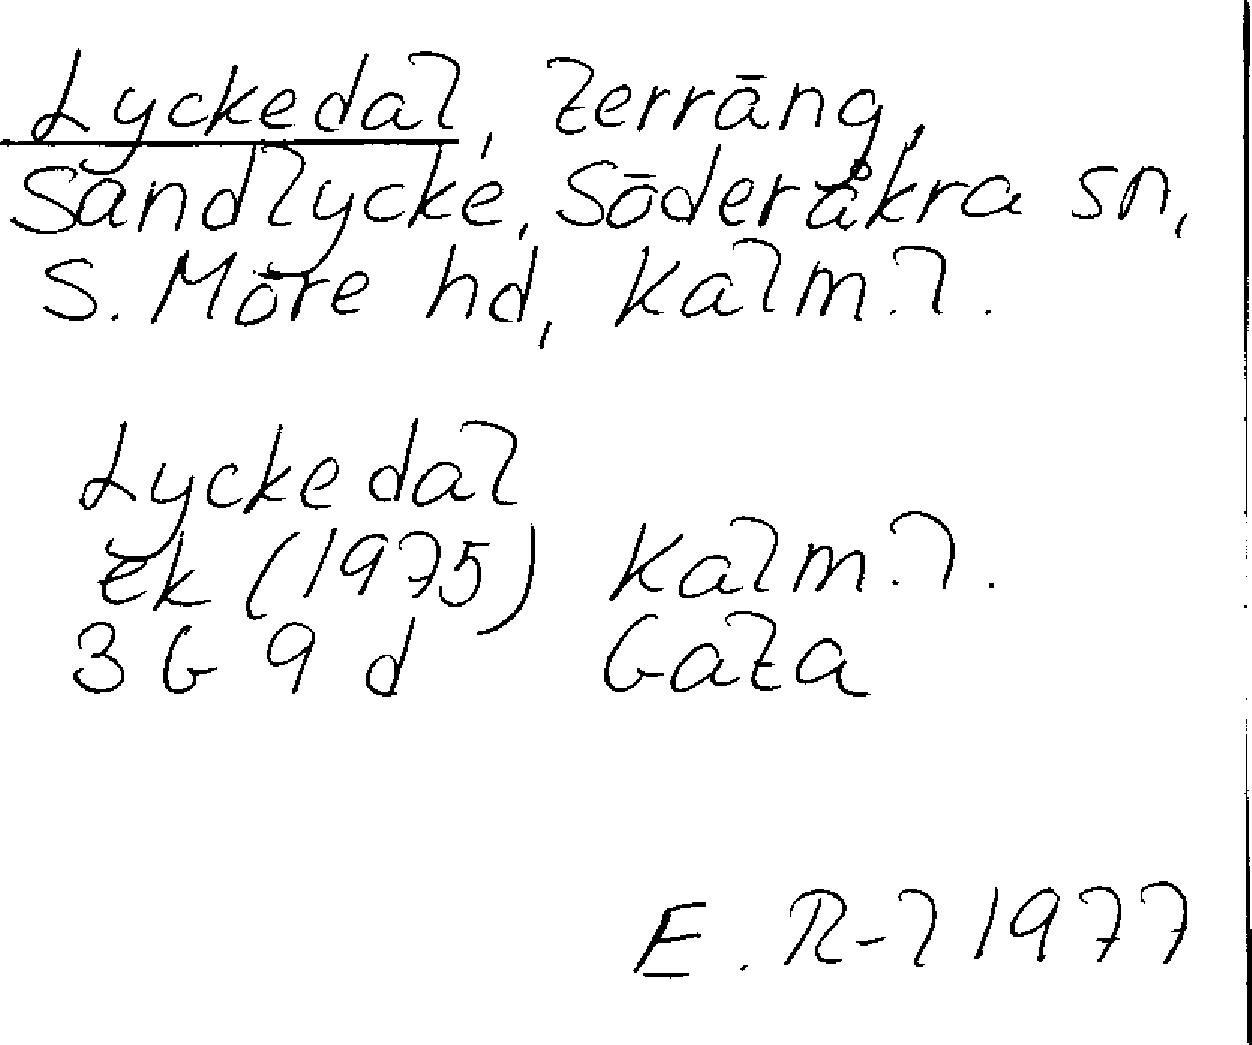 Lyckedal, terräng,
Sandlycke, Söderåkra sn,
S. Möre hd, Kalm. l.
Lyckedal
Ek (1975) Kalm. l.
3G 9d Gata
E. R-l 1977